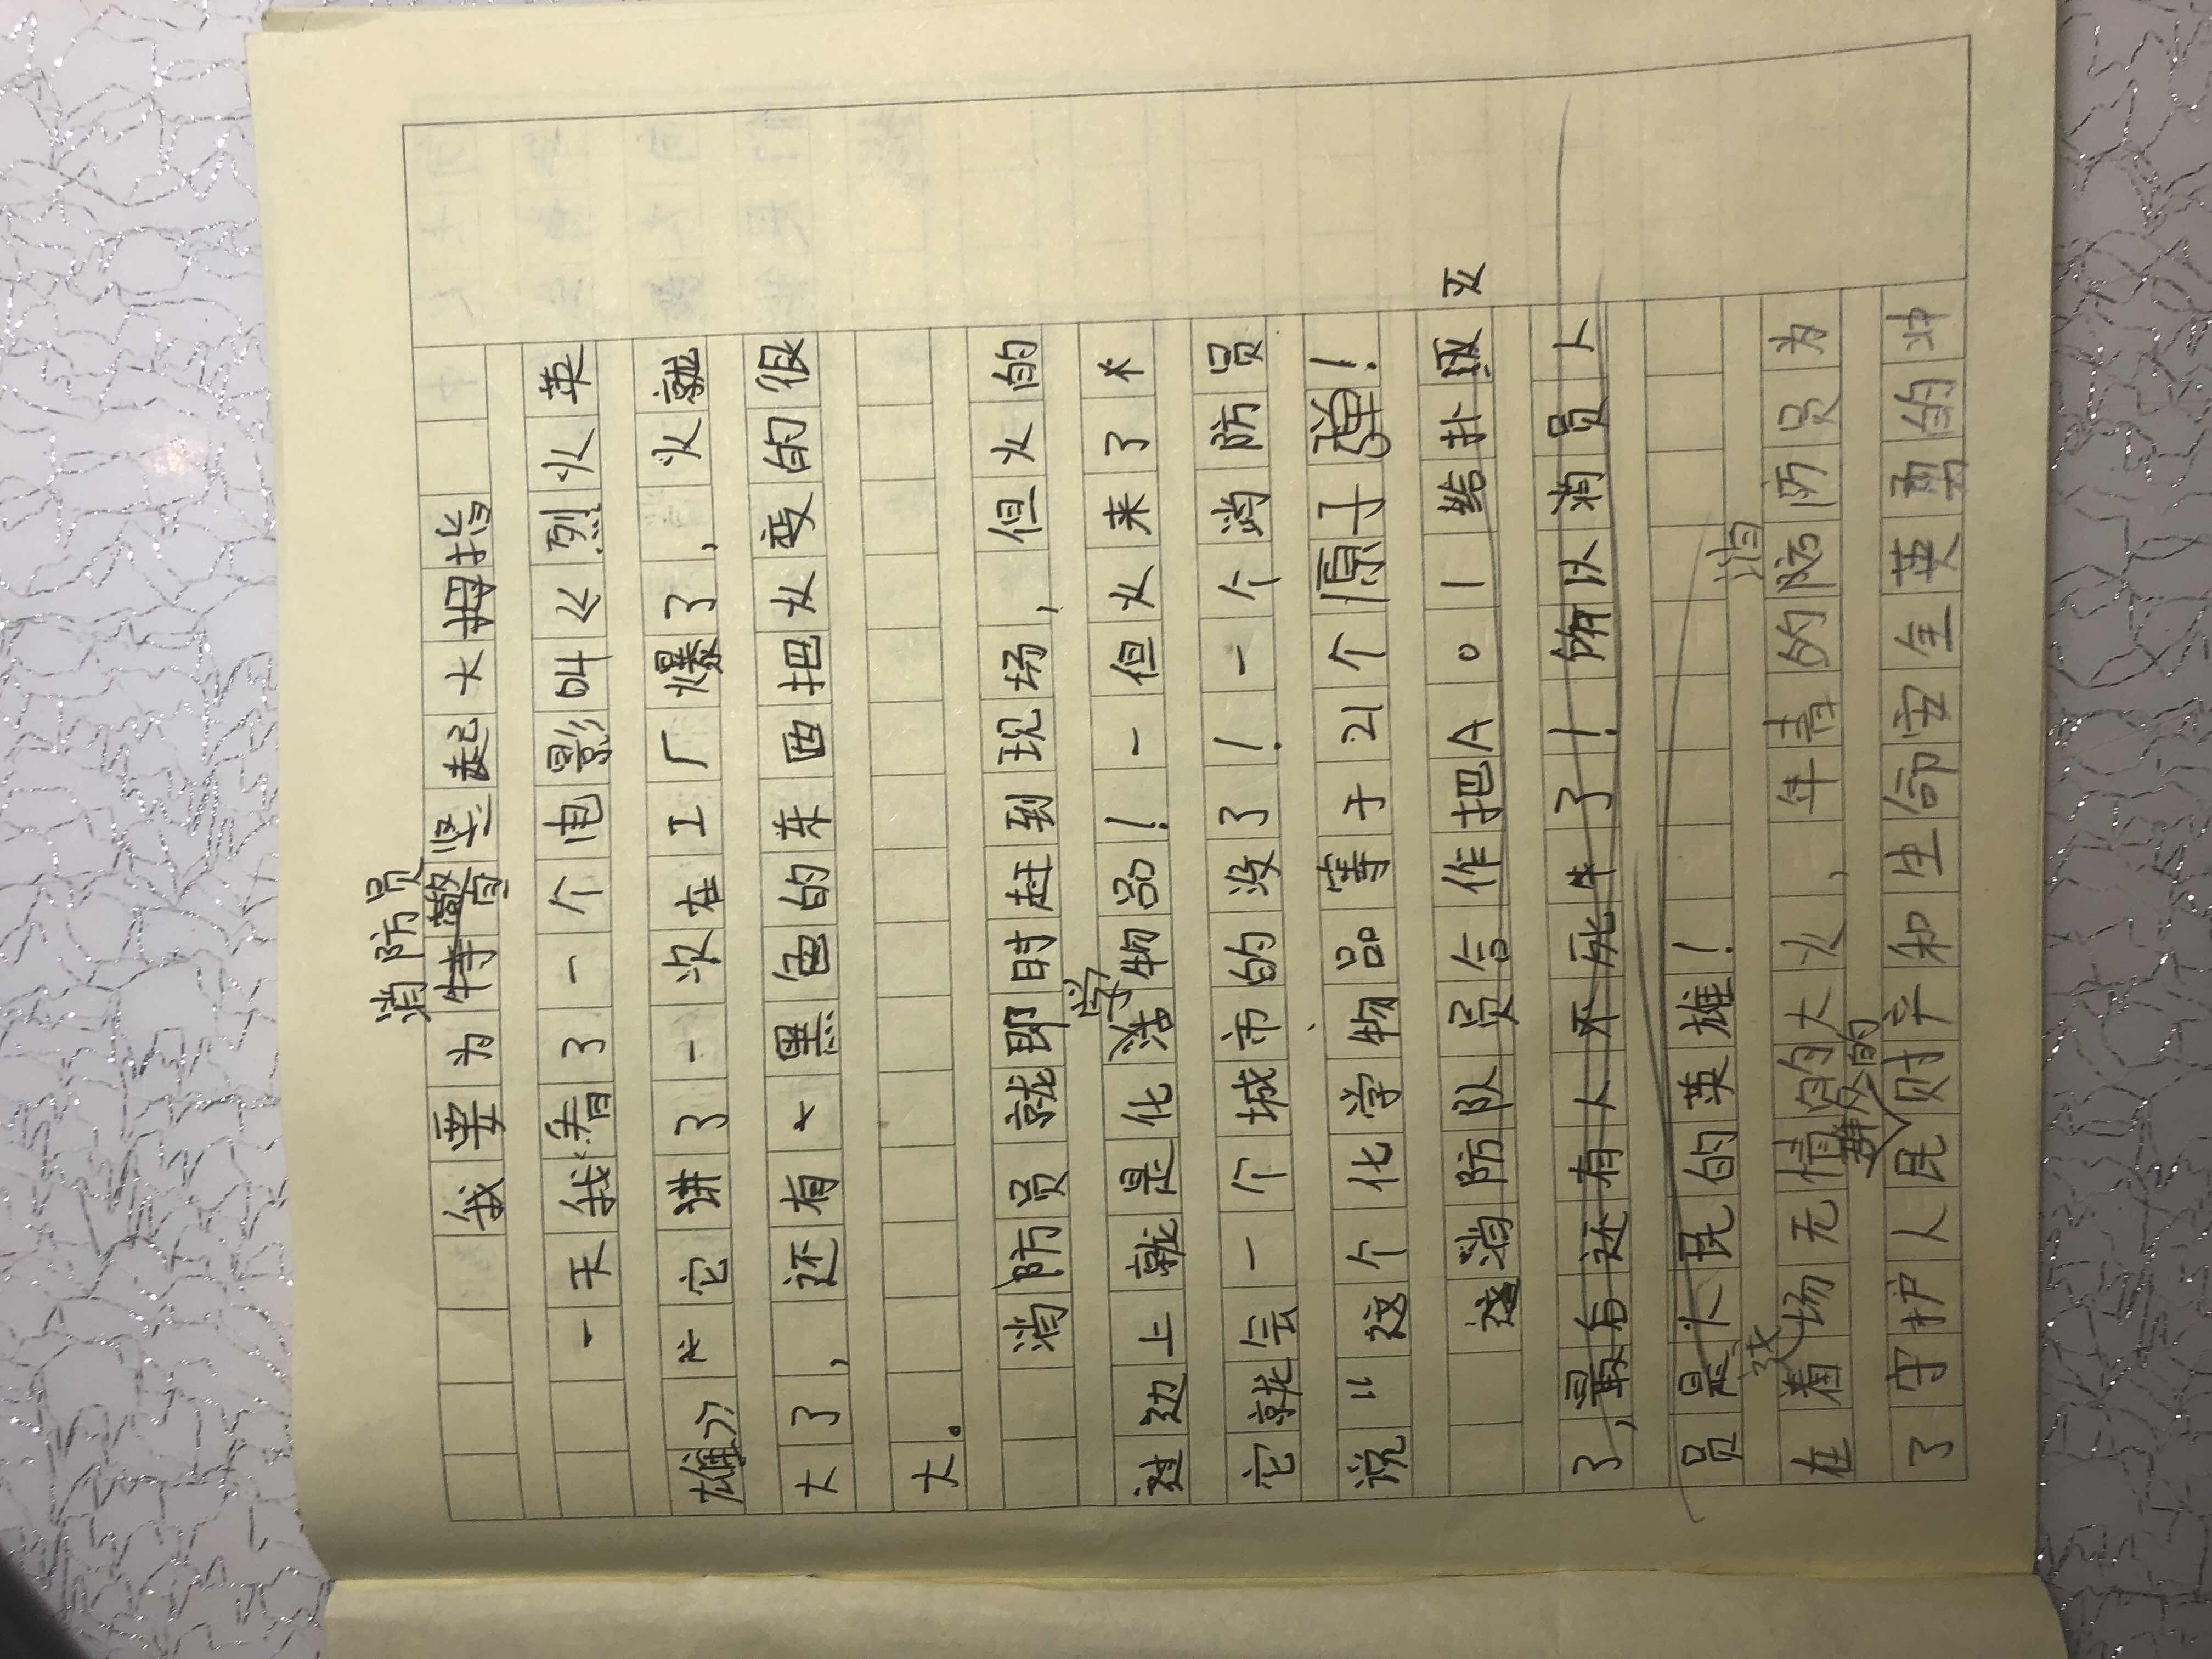 消防员
我要为特警竖起大拇指
一天我看了一个电影叫《烈火英
雄》它讲了一次在工厂爆了，火就
大了，还有黑色的东西把火变的很
大。
消防员就即时赶到现场，但火的
学
过边上就是化物品！一但火来了
它就会一个城市的没了！一个消防员
说“这个化学物品等于21个原子弹！
消防队员合作把A01给扑灭
了，最后还有人不死牛了！所以消员人
员是人民的英雄！
战 消
在着场无情的大火，年青的防防员为
费的
了守护人民财产和生命安全英勇的冲